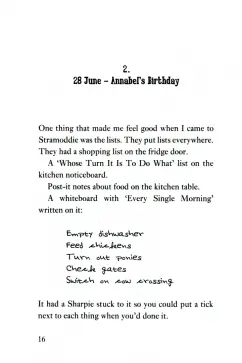 2.
28 June – Annabel's Birthday
One thing that made me feel good when I came to
Stramoddie was the lists. They put lists everywhere.
They had a shopping list on the fridge door.
A ‘Whose Turn It Is To Do What’ list on the
kitchen noticeboard.
Post-it notes about food on the kitchen table.
A whiteboard with ‘Every Single Morning’
written on it:
Empty dishwasher
Feed chickens
Turn out ponies
Check gates
Switch on cow crossing
It had a Sharpie stuck to it so you could put a tick
next to each thing when you'd done it.
16